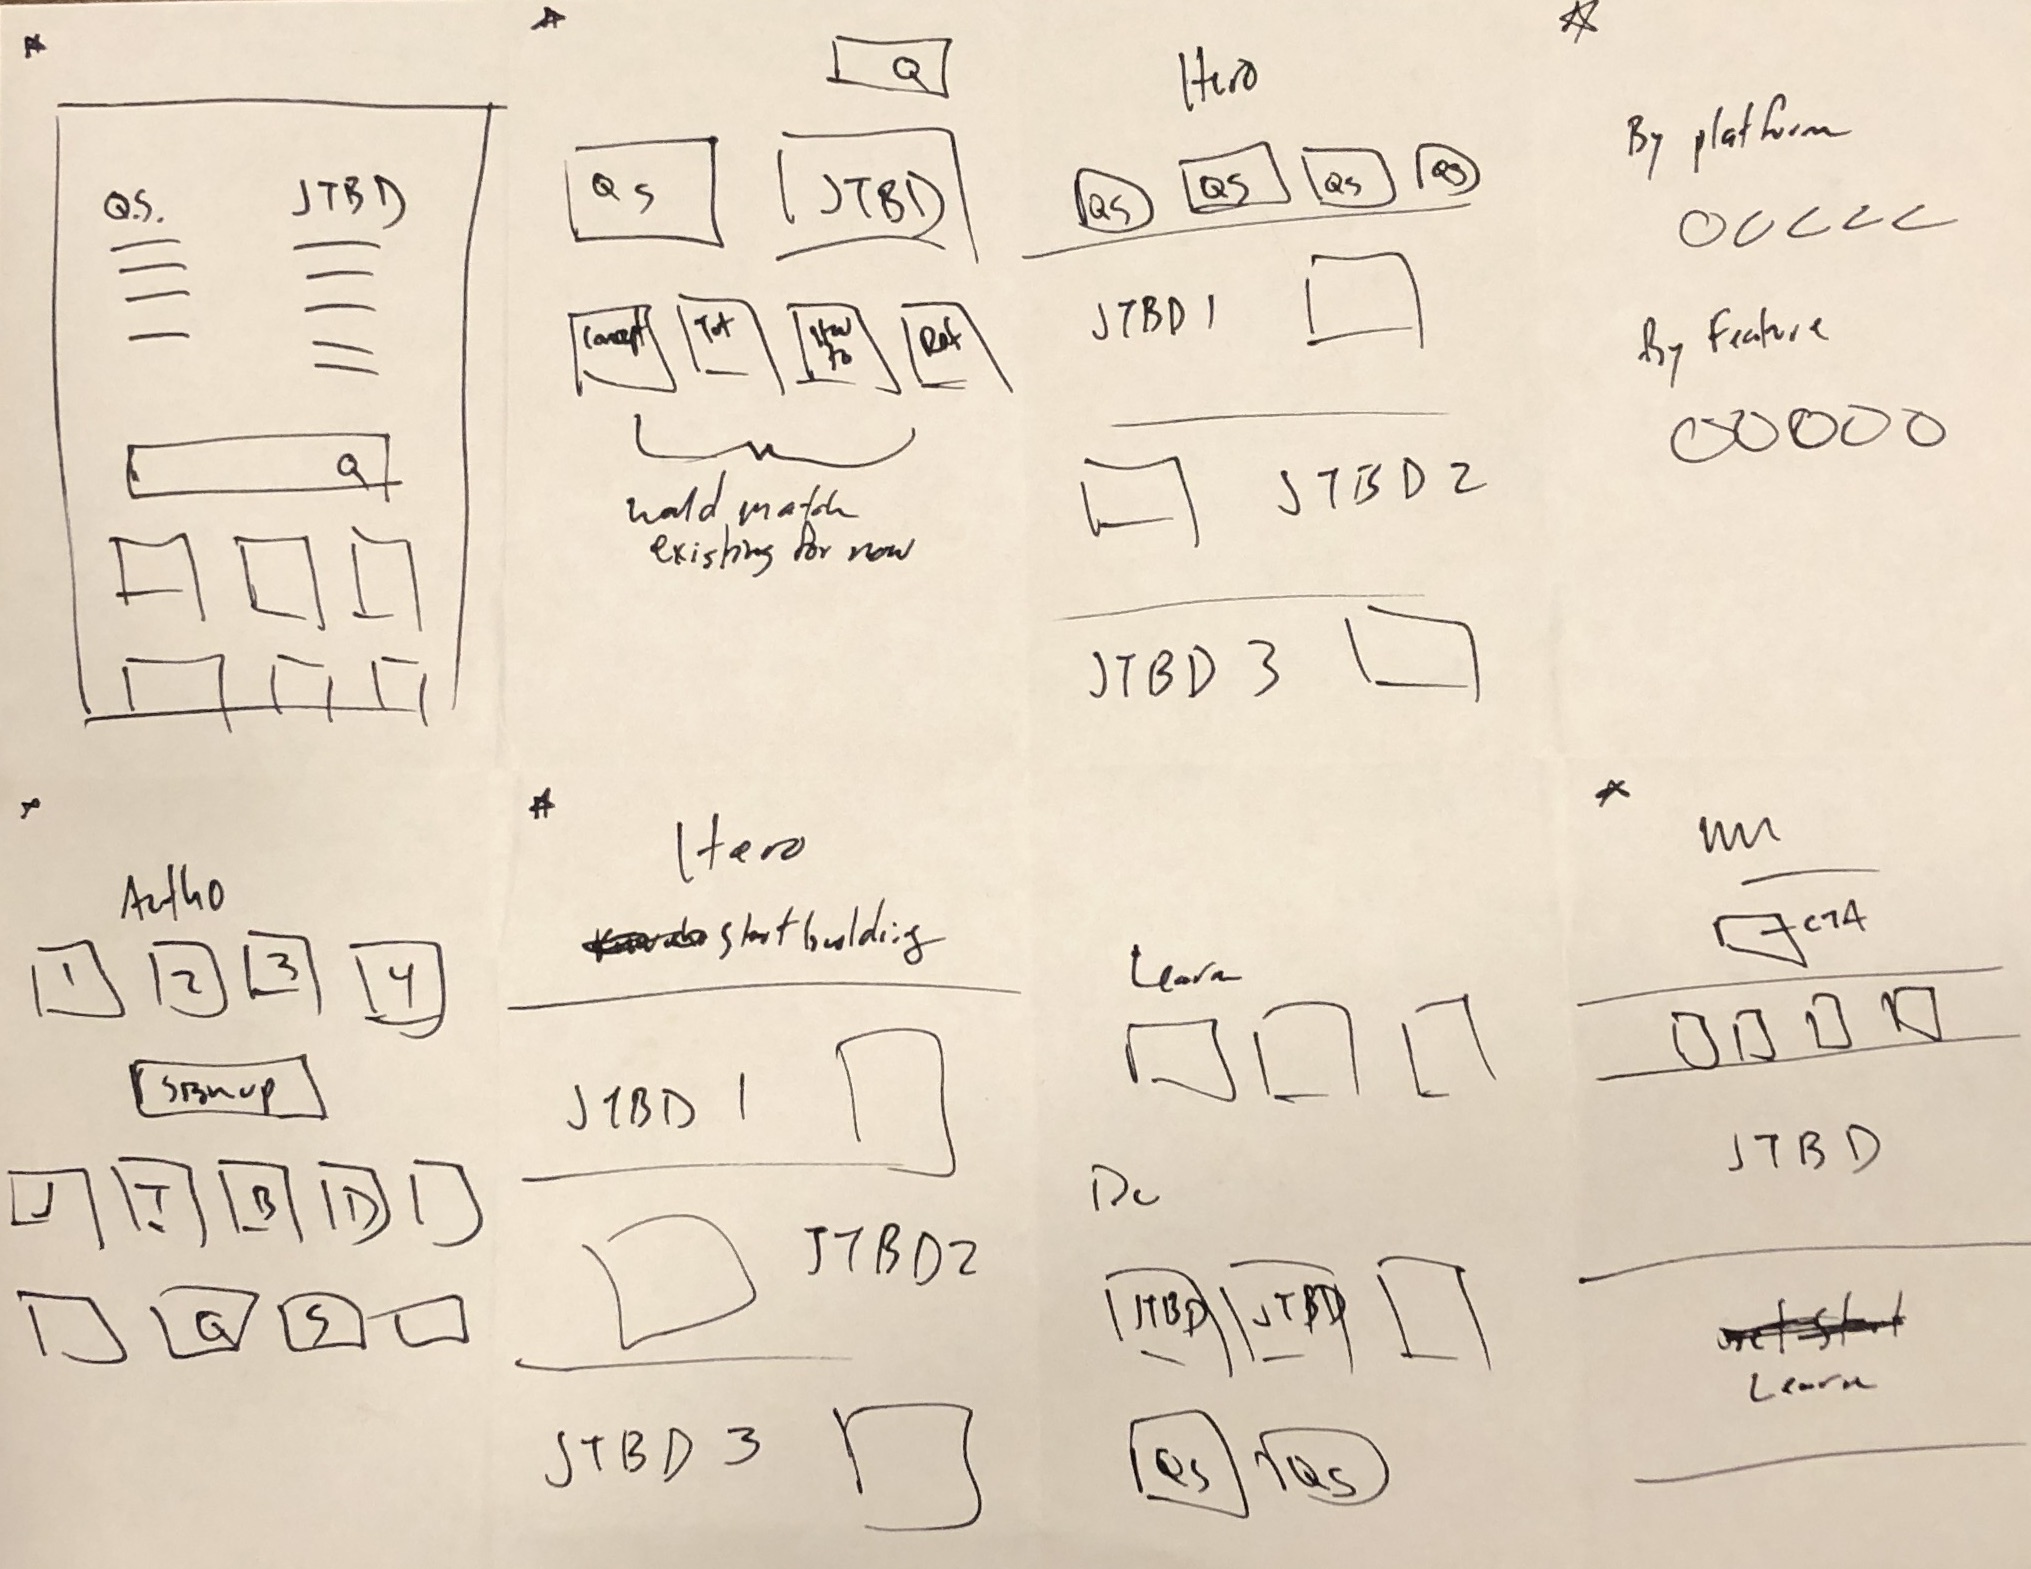 Q.S. JTBD
QS JTBD
Concept Tut How to Ref
would match
existing for now
Hero
QS QS QS QS
JTBD 1
JTBD 2
JTBD 3
By platform
By Feature
Auth0
1 2 3 4
Sign up
J T B D
Q S
Hero
start building
JTBD 1
JTBD 2
JTBD 3
Learn
Do
JTBD JTBD
QS QS
CTA
JTBD
Learn